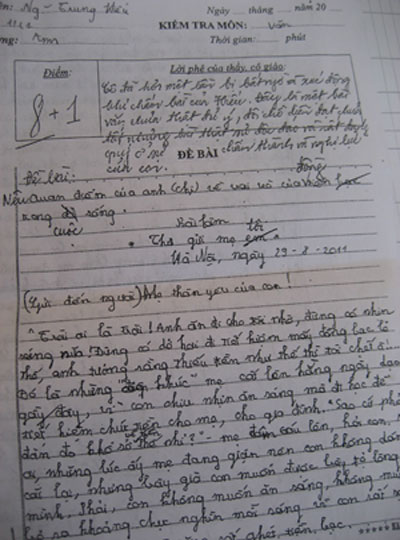 Ng - Trung Hiếu
Ngày ...... tháng ...... năm 20 ...
KIỂM TRA MÔN: Văn
Thời gian: ...... phút
Điểm:
Lời phê của thầy, cô giáo:
8 + 1
Cô đã hơn một lần bị bất ngờ và xúc động
khi chấm bài của Hiếu. Đây là một bài
văn chưa thật đủ ý, đôi chỗ diễn đạt chưa
tốt nhưng
quý ở sự chân thành và nghị lực
của con.
ĐỀ BÀI
Đề bài:
Nêu quan điểm của anh (chị) về vai trò của đồng
trong cuộc sống.
Bài làm
Thơ gửi mẹ tôi
Hà Nội, ngày 29 - 8 - 2011
(Gửi đến người) Mẹ thân yêu của con!
"Trời ơi là trời! Anh ăn đi cho tôi nhờ, đừng có nhịn
sáng nữa! Đừng có dở hơi đi tiết kiệm mấy đồng bạc lẻ
thế, anh tưởng rằng thiếu tiền như thế thì tôi chết à...
Đó là những "điệp khúc" mẹ cất lên hằng ngày, dạo
gần đây, vì con chịu nhịn ăn sáng mà đi học để
tiết kiệm chút tiền cho mẹ, cho gia đình. "Sao có phải
dám đo khó sở thế nhỉ?" - mẹ sầu lên, hỏi con.
ạ, những lúc ấy mẹ đang giận nên con không dám
cãi lại, nhưng bây giờ con muốn được bày tỏ lòng
mình. Phải, con không muốn ăn sáng, không mu